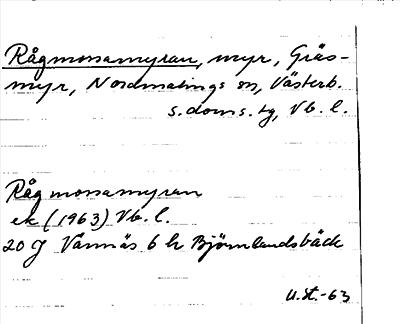 Rågmossamyran, myr, Gräs-
myr, Nordmalings sn, Västerb.
s. doms. tg, Vb. l.
Rågmossamyran
ek (1963) Vb. l.
20 J Vännäs 6 h Björnlandsbäck
U.St.-63